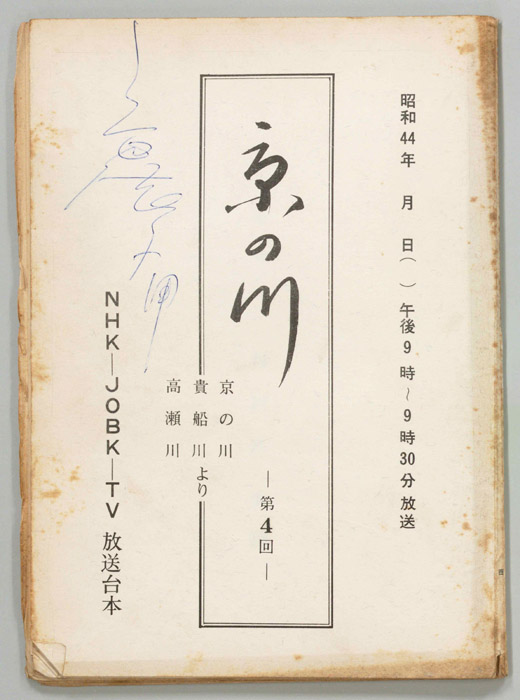 昭和44年　月　日（　）午後9時～9時30分放送
京の川
―第4回―
京の川
貴船川より
高瀬川
NHK―JOBK―TV 放送台本